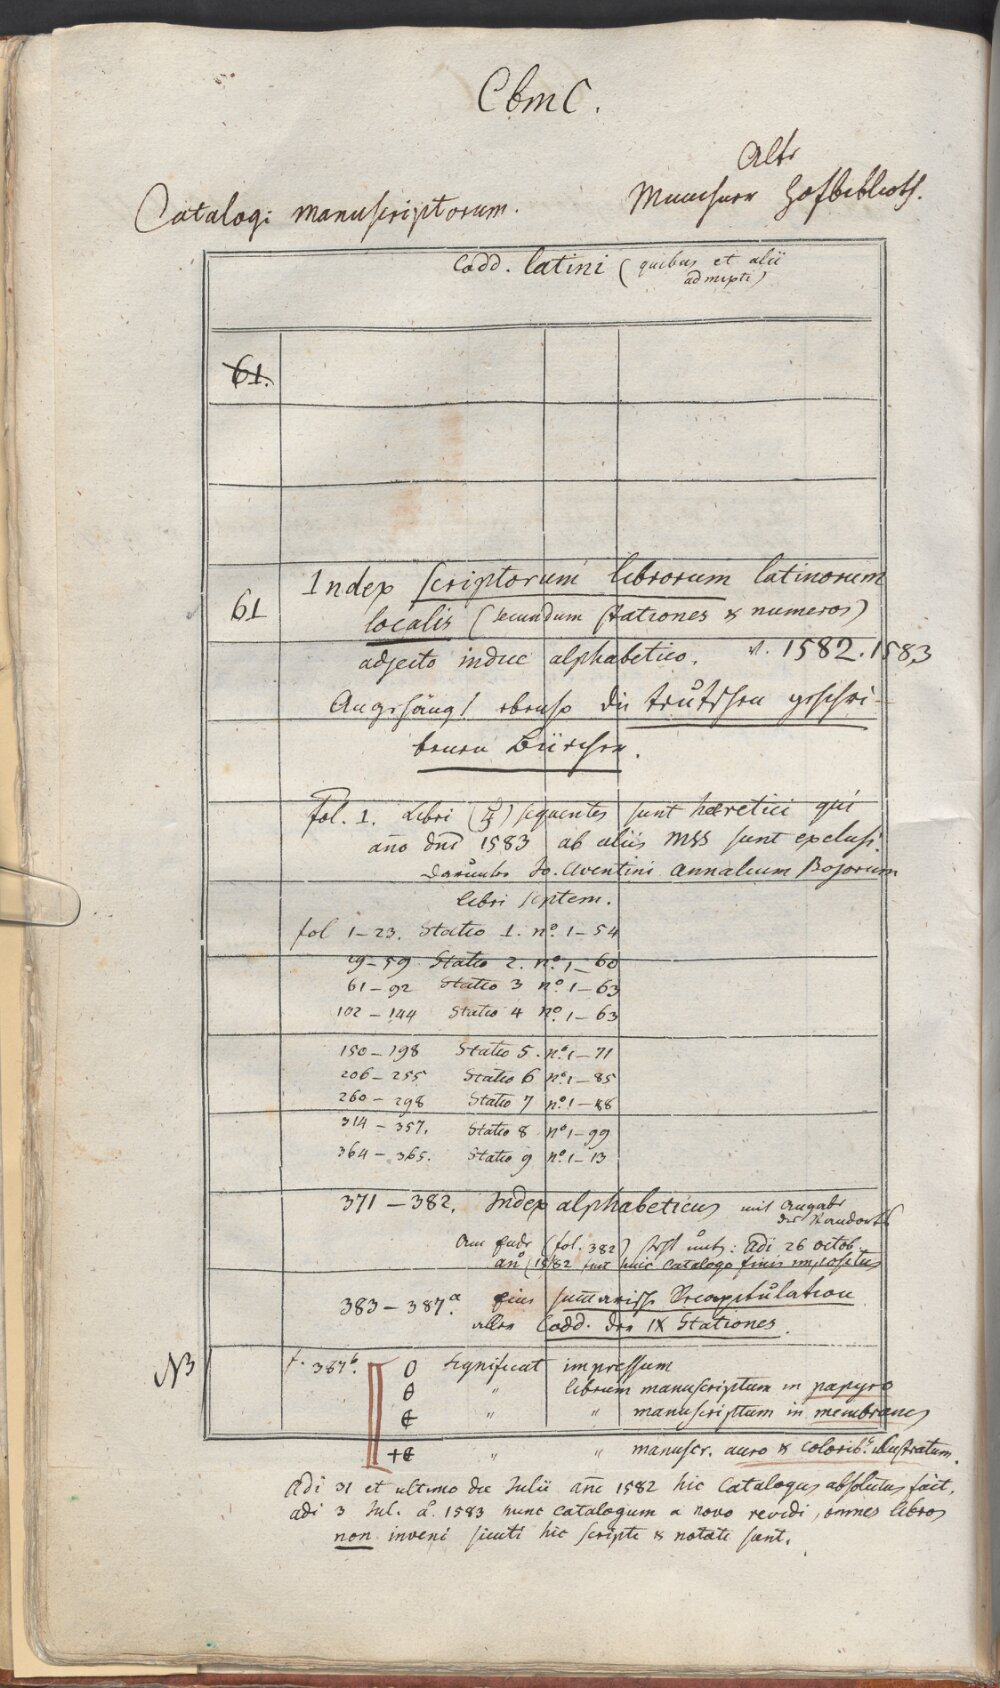 CbmC.
Alte
Münchner Hofbiblioth.
Catalogi manuscriptorum.
Codd. latini (quibus et alii
admixti)
61.
61
Index scriptorum librorum latinorum
localis (secundum stationes & numeros)
adjecto indice alphabetico. v. 1582. 1583
Angehängt ebenso die teütschen geschri-
benen Büecher.
fol. 1. Libri sequentes sunt haeretici qui
año dnĩ 1583 ab aliis MSS sunt exclusi.
Darunter Jo. Aventini Annalium Bojorum
libri septem.
fol 1–23. Statio 1. nº. 1–54
29–59 Statio 2. nº. 1–60
61–92 Statio 3 nº. 1–63
102–144 Statio 4 nº. 1–63
150–198 Statio 5. nº. 1–71
206–255 Statio 6 nº. 1–85
260–298 Statio 7 nº. 1–88
314–357. Statio 8 nº 1–99
364–365. Statio 9 nº. 1–13
371–382. Index alphabeticus mit Angabe
der Standorte
Am Ende (fol. 382) steht : Adi 26 octob.
añ 1582 fuit huic catalogo finis impositus
383–387ª. Eine summarische Recapitulation
aller Codd. der IX Stationes.
NB
f. 387b. O significat impressum
Ɵ " librum manuscriptum in papyro
" " manuscriptum in membranes
" " manuscr. auro & colorib. illustratum.
Adi 31 et ultimo die Julii añ 1582 hic Catalogus absolutus fuit,
adi 3 Jul. a. 1583 hunc catalogum a novo revidi, omnes libros
non inveni sicuti hic scripti & notati sunt.